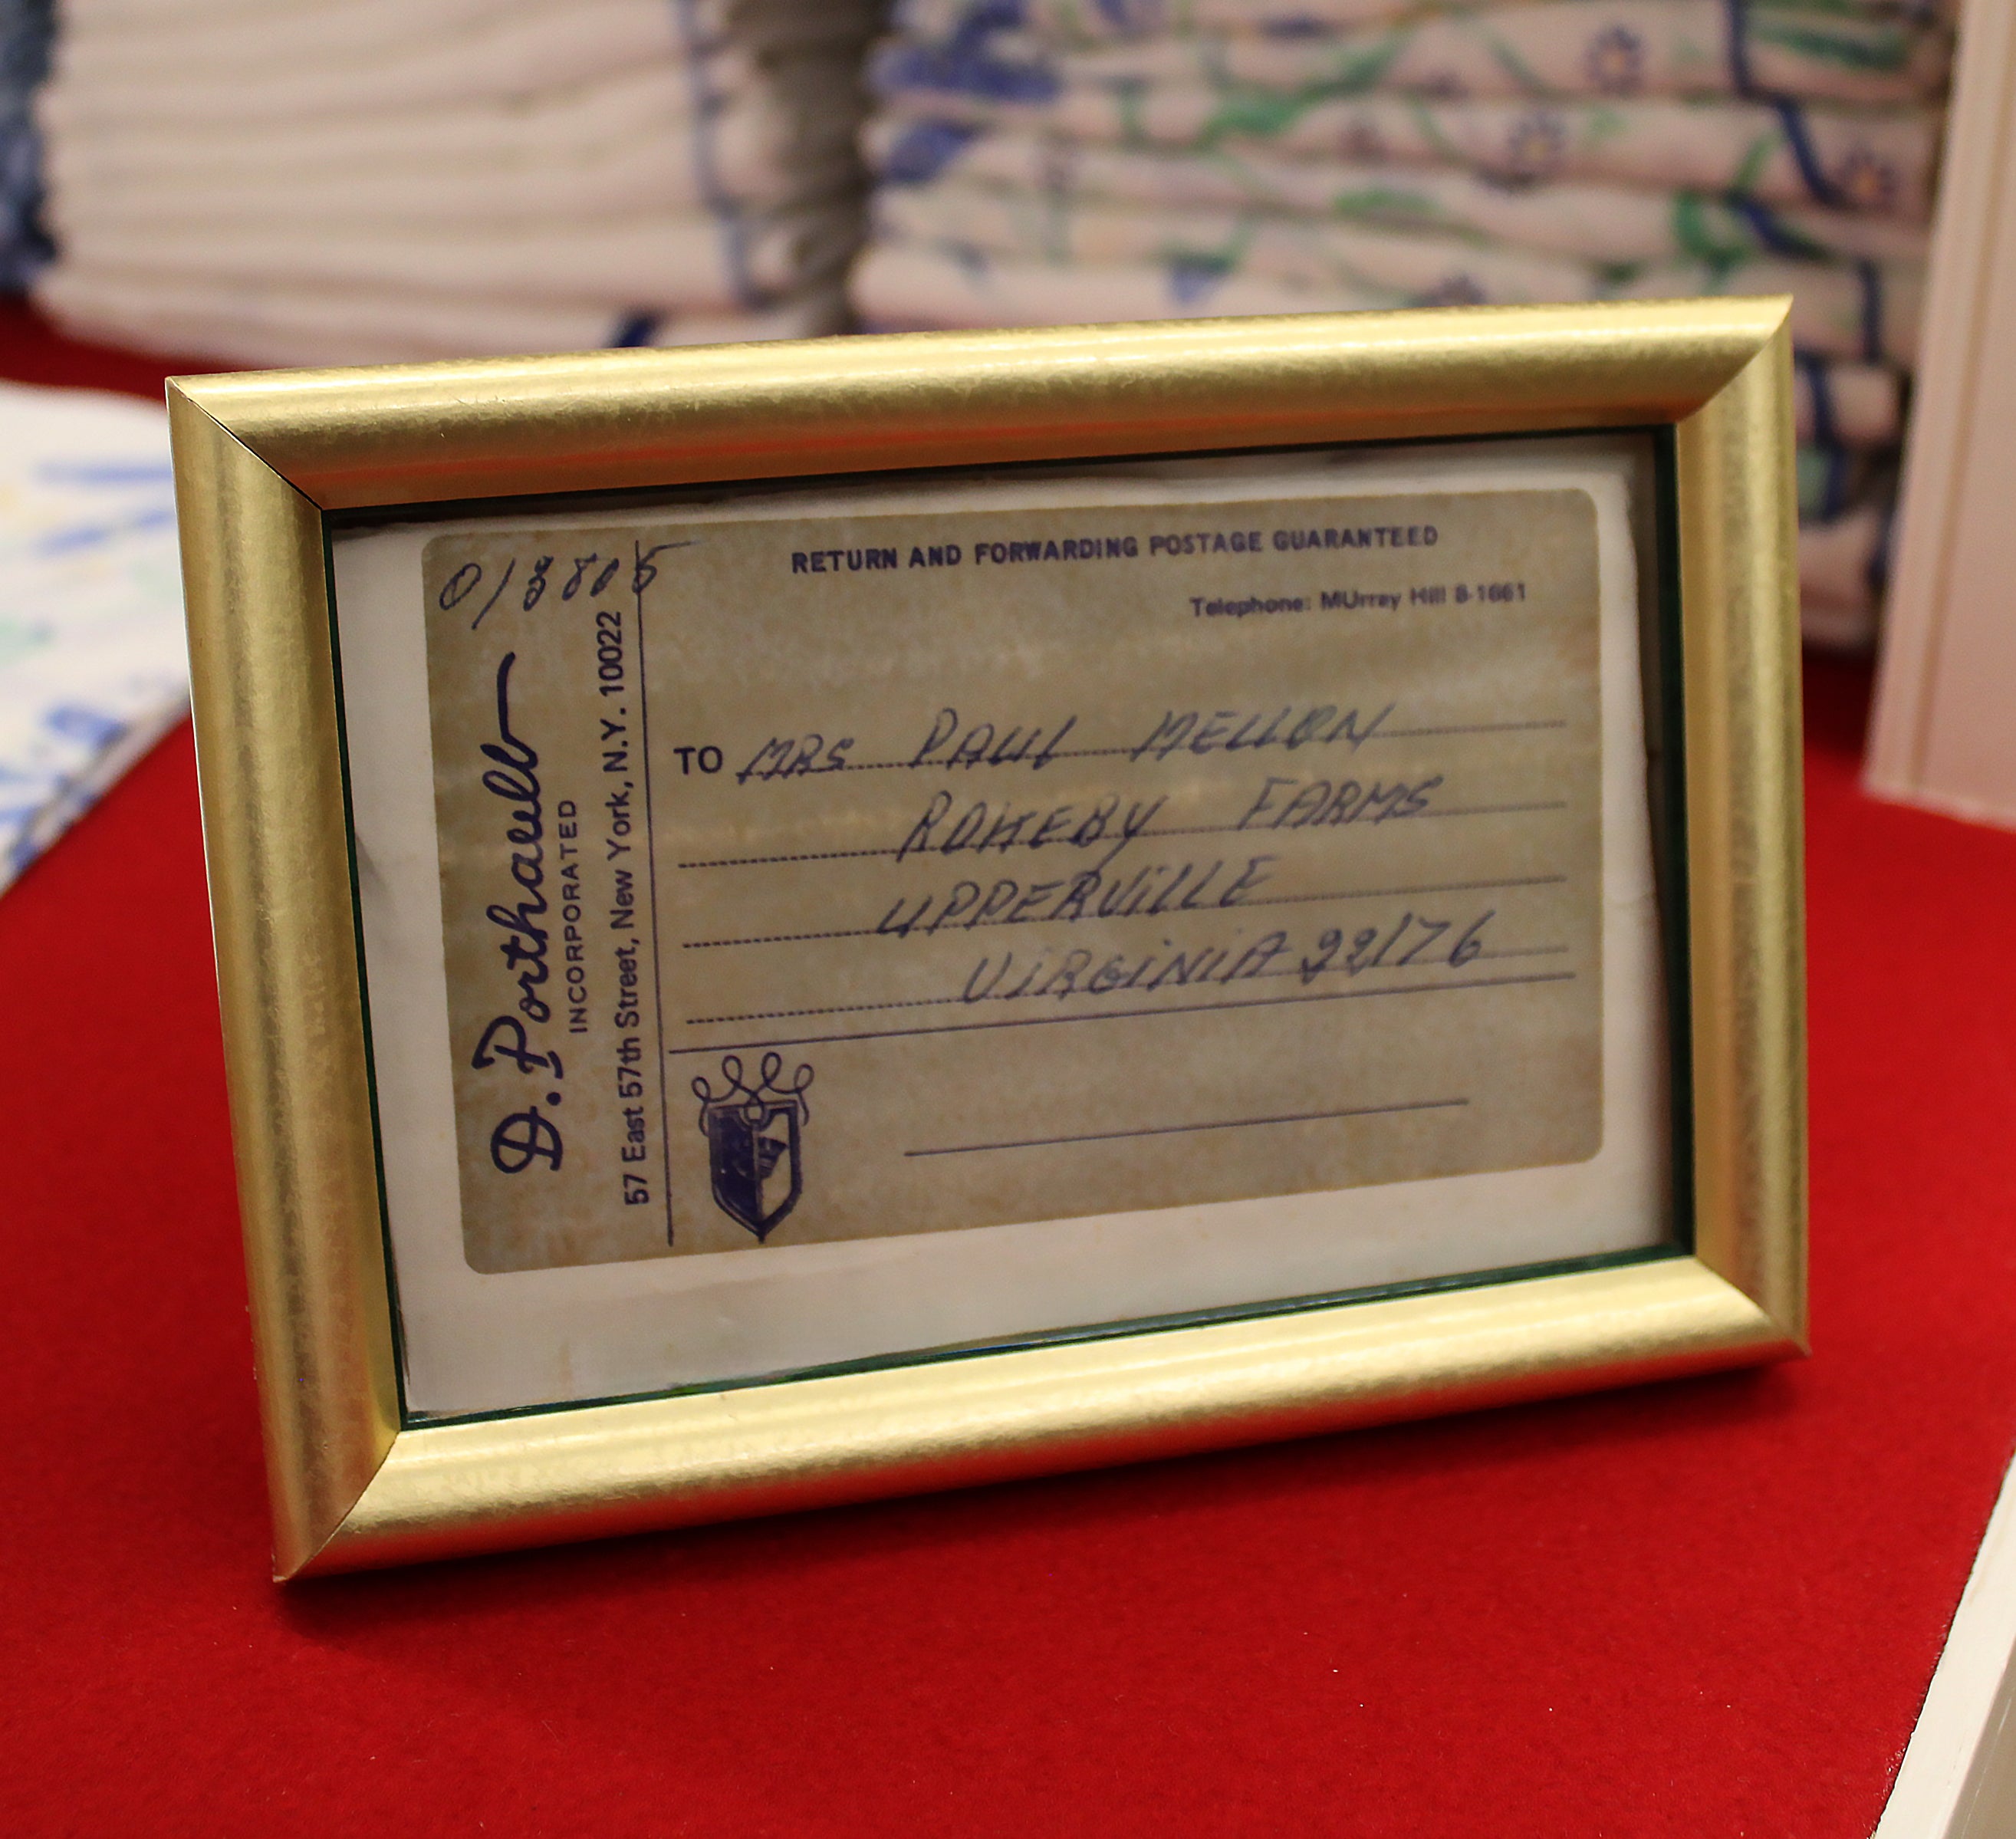 RETURN AND FORWARDING POSTAGE GUARANTEED
Telephone: MUrray Hill 8-1661
D. Porthault
INCORPORATED
57 East 57th Street, New York, N.Y. 10022
TO MRS PAUL MELLON
ROKEBY FARMS
UPPERVILLE
VIRGINIA 22176